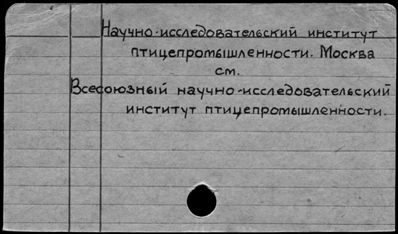 Научно-исследовательский институт
птицепромышленности. Москва
см.
Всесоюзный научно-исследовательский
институт птицепромышленности.